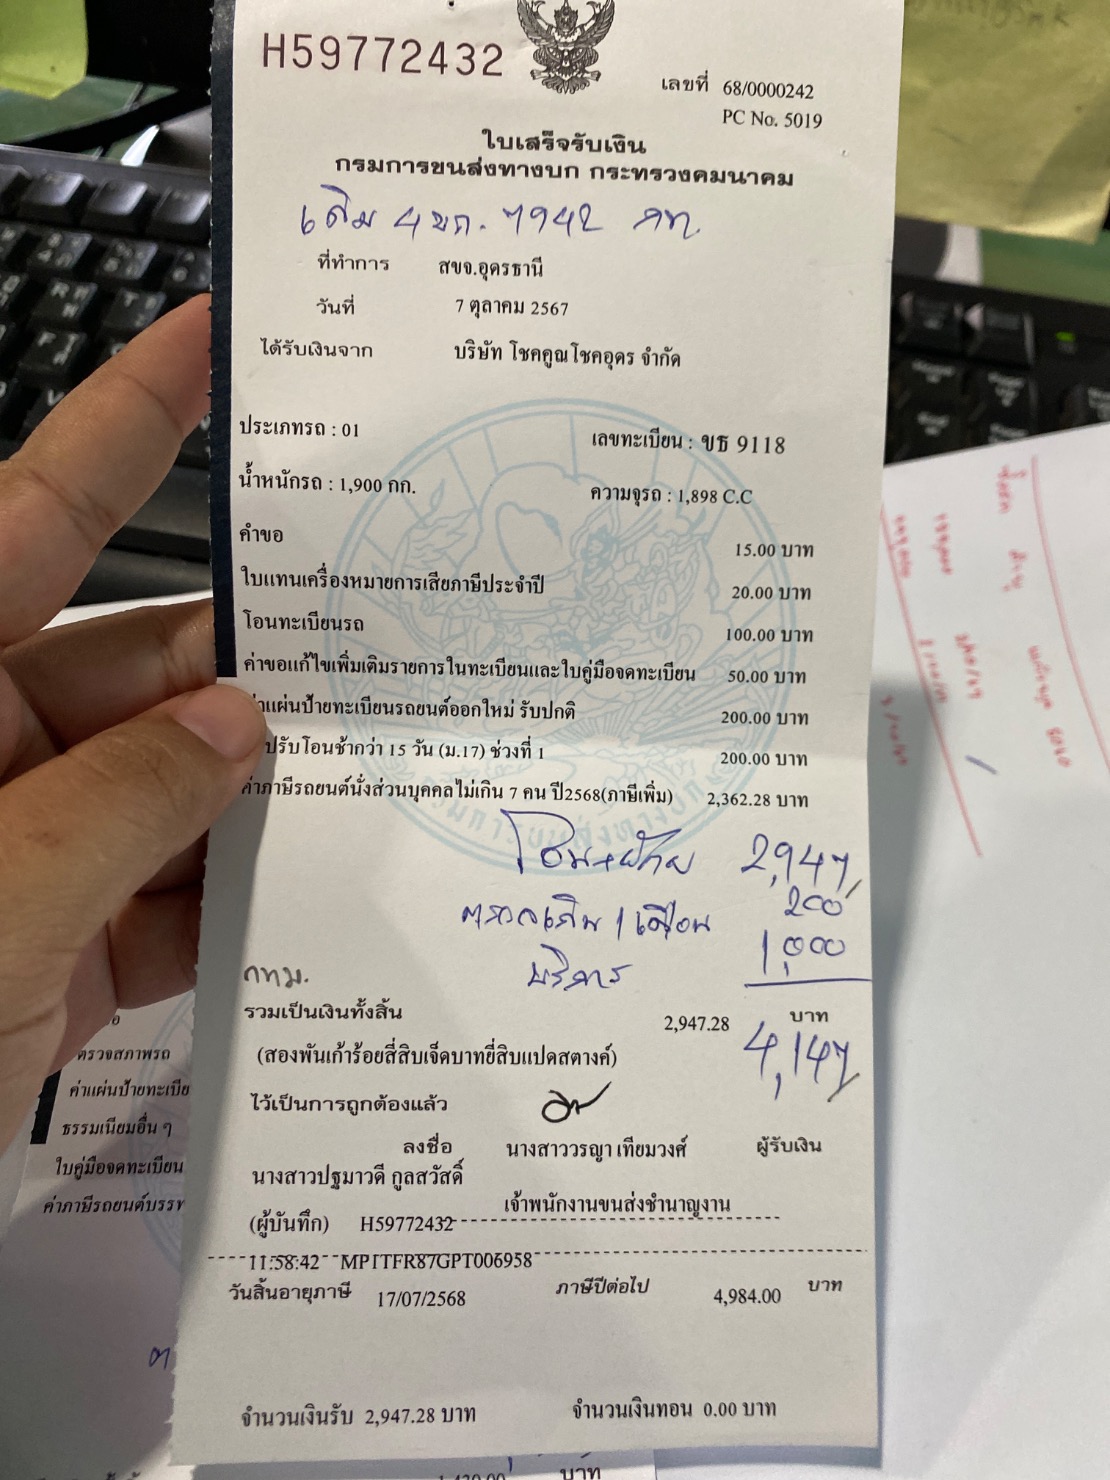 H59772432
เลขที่ 68/0000242
PC No. 5019
ใบเสร็จรับเงิน
กรมการขนส่งทางบก กระทรวงคมนาคม
เดิม 4 ขก. 7942 กท.
ที่ทำการ สขจ.อุดรธานี
วันที่ 7 ตุลาคม 2567
ได้รับเงินจาก บริษัท โชคคูณโชคอุดร จำกัด
ประเภทรถ : 01 เลขทะเบียน : ขธ 9118
น้ำหนักรถ : 1,900 กก. ความจุรถ : 1,898 C.C
คำขอ 15.00 บาท
ใบแทนเครื่องหมายการเสียภาษีประจำปี 20.00 บาท
โอนทะเบียนรถ 100.00 บาท
ค่าขอแก้ไขเพิ่มเติมรายการในทะเบียนและใบคู่มือจดทะเบียน 50.00 บาท
ค่าแผ่นป้ายทะเบียนรถยนต์ออกใหม่ รับปกติ 200.00 บาท
ปรับโอนช้ากว่า 15 วัน (ม.17) ช่วงที่ 1 200.00 บาท
ค่าภาษีรถยนต์นั่งส่วนบุคคลไม่เกิน 7 คน ปี2568(ภาษีเพิ่ม) 2,362.28 บาท
โอน+ย้าย 2,947
200
1,000
บริการ
กทม.
รวมเป็นเงินทั้งสิ้น 2,947.28 บาท
4,147
(สองพันเก้าร้อยสี่สิบเจ็ดบาทยี่สิบแปดสตางค์)
ไว้เป็นการถูกต้องแล้ว
ลงชื่อ นางสาววรญา เทียมวงศ์ ผู้รับเงิน
นางสาวปฐมาวดี กูลสวัสดิ์
เจ้าพนักงานขนส่งชำนาญงาน
(ผู้บันทึก) H59772432
11:58:42 MP1TFR87GPT006958
วันสิ้นอายุภาษี 17/07/2568 ภาษีปีต่อไป 4,984.00 บาท
จำนวนเงินรับ 2,947.28 บาท จำนวนเงินทอน 0.00 บาท
ตรวจสภาพรถ
ค่าแผ่นป้ายทะเบีย
ธรรมเนียมอื่น ๆ
ใบคู่มือจดทะเบียน
ค่าภาษีรถยนต์บรรท
บาท